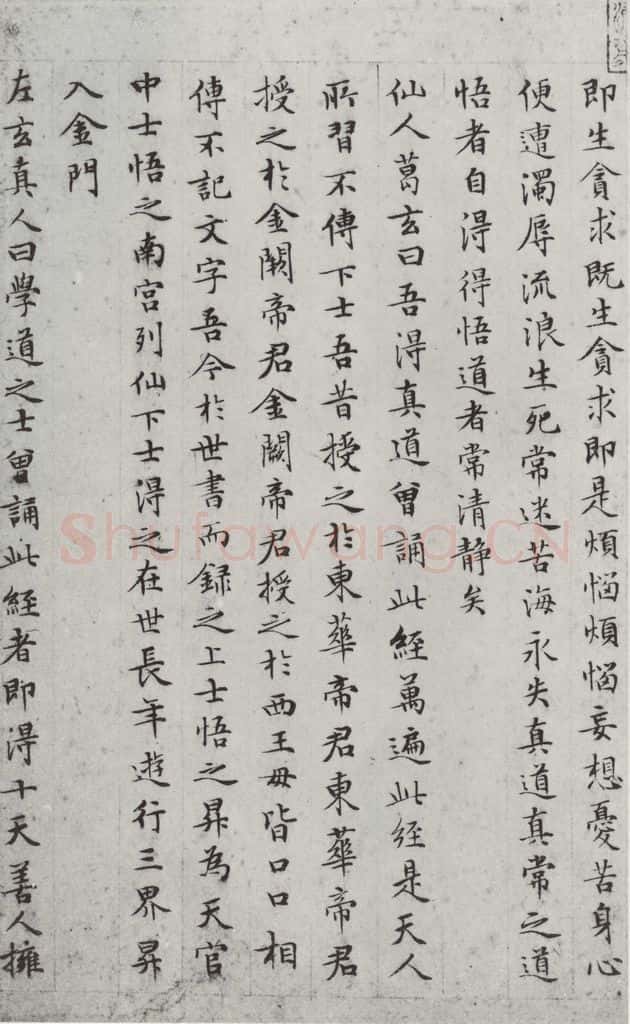 即生貪求既生貪求即是煩惱煩惱妄想憂苦身心
便遭濁辱流浪生死常迷苦海永失真道真常之道
悟者自得得悟道者常清静矣
仙人葛玄曰吾得真道曾誦此經萬遍此経是天人
所習不傳下士吾昔授之於東華帝君東華帝君
授之於金闕帝君金闕帝君授之於西王母皆口口相
傳不記文字吾今於世書而録之上士悟之昇為天官
中士悟之南宫列仙下士得之在世長年遊行三界昇
入金門
左玄真人曰學道之士曾誦此經者即得十天善人擁
Shufawang.CN